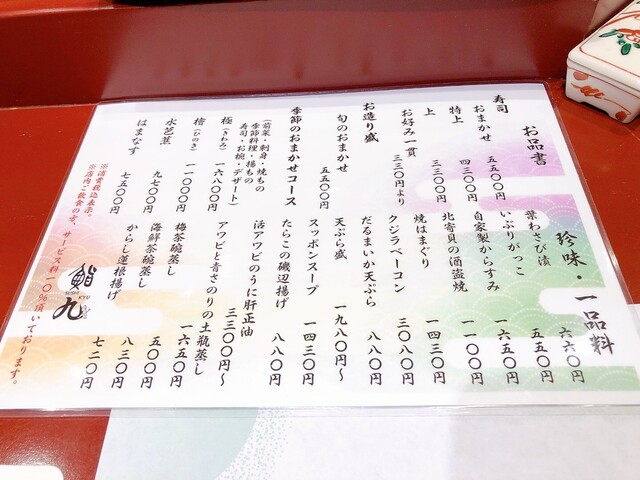 お品書
寿司
おまかせ 五五〇〇円
特上 四三〇〇円
上 三三〇〇円
お好み一貫 三三〇円より
お造り盛
旬のおまかせ 五五〇〇円
季節のおまかせコース
(前菜・刺身・焼もの
季節料理・揚もの
寿司・お椀・デザート)
極(きわみ) 一六八〇〇円
檜(ひのき) 一一〇〇〇円
水芭蕉 九七〇〇円
はまなす 七五〇〇円
※消費税込表示。
※店内ご飲食の際、サービス料一〇%頂いております。
珍味・一品料
葉わさび漬 六六〇円
いぶりがっこ 五五〇円
自家製からすみ 一六五〇円
北寄貝の酒盗焼 一一〇〇円
焼はまぐり 一四三〇円
クジラベーコン 三〇八〇円
だるまいか天ぷら 八八〇円
天ぷら盛 一九八〇円〜
スッポンスープ 一四三〇円
たらこの磯辺揚げ 八八〇円
活アワビのうに肝正油 三三〇〇円〜
アワビと青さのりの土瓶蒸し 一六五〇円
梅茶碗蒸し 五〇〇円
海鮮茶碗蒸し 八三〇円
からし蓮根揚げ 七二〇円
鮨
SUSHI KYU
九